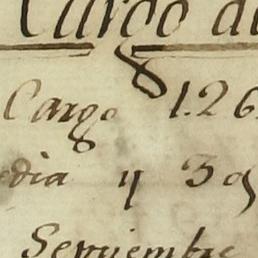 Cargo d
Cargo 1.26
edia y 3 q
Septiembre